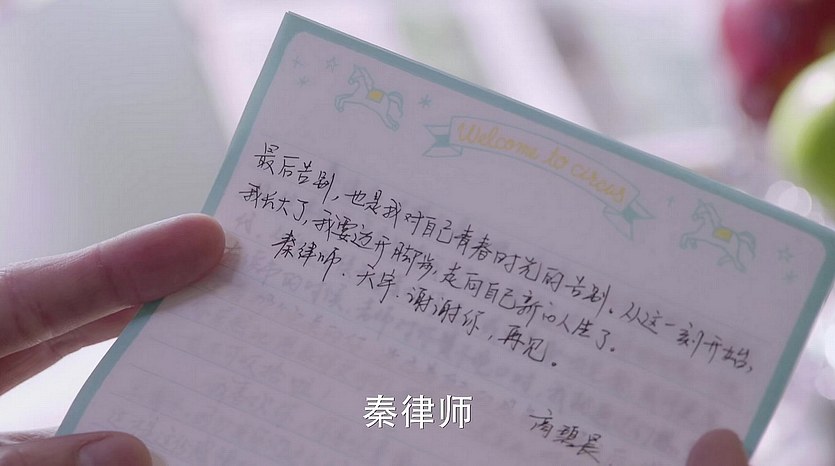 Welcome to circus
最后告别，也是我对自己青春时光的告别。从这一刻开始，
我长大了，我要迈开脚步，走向自己新的人生了。
秦律师．天宇．谢谢你，再见。
秦律师